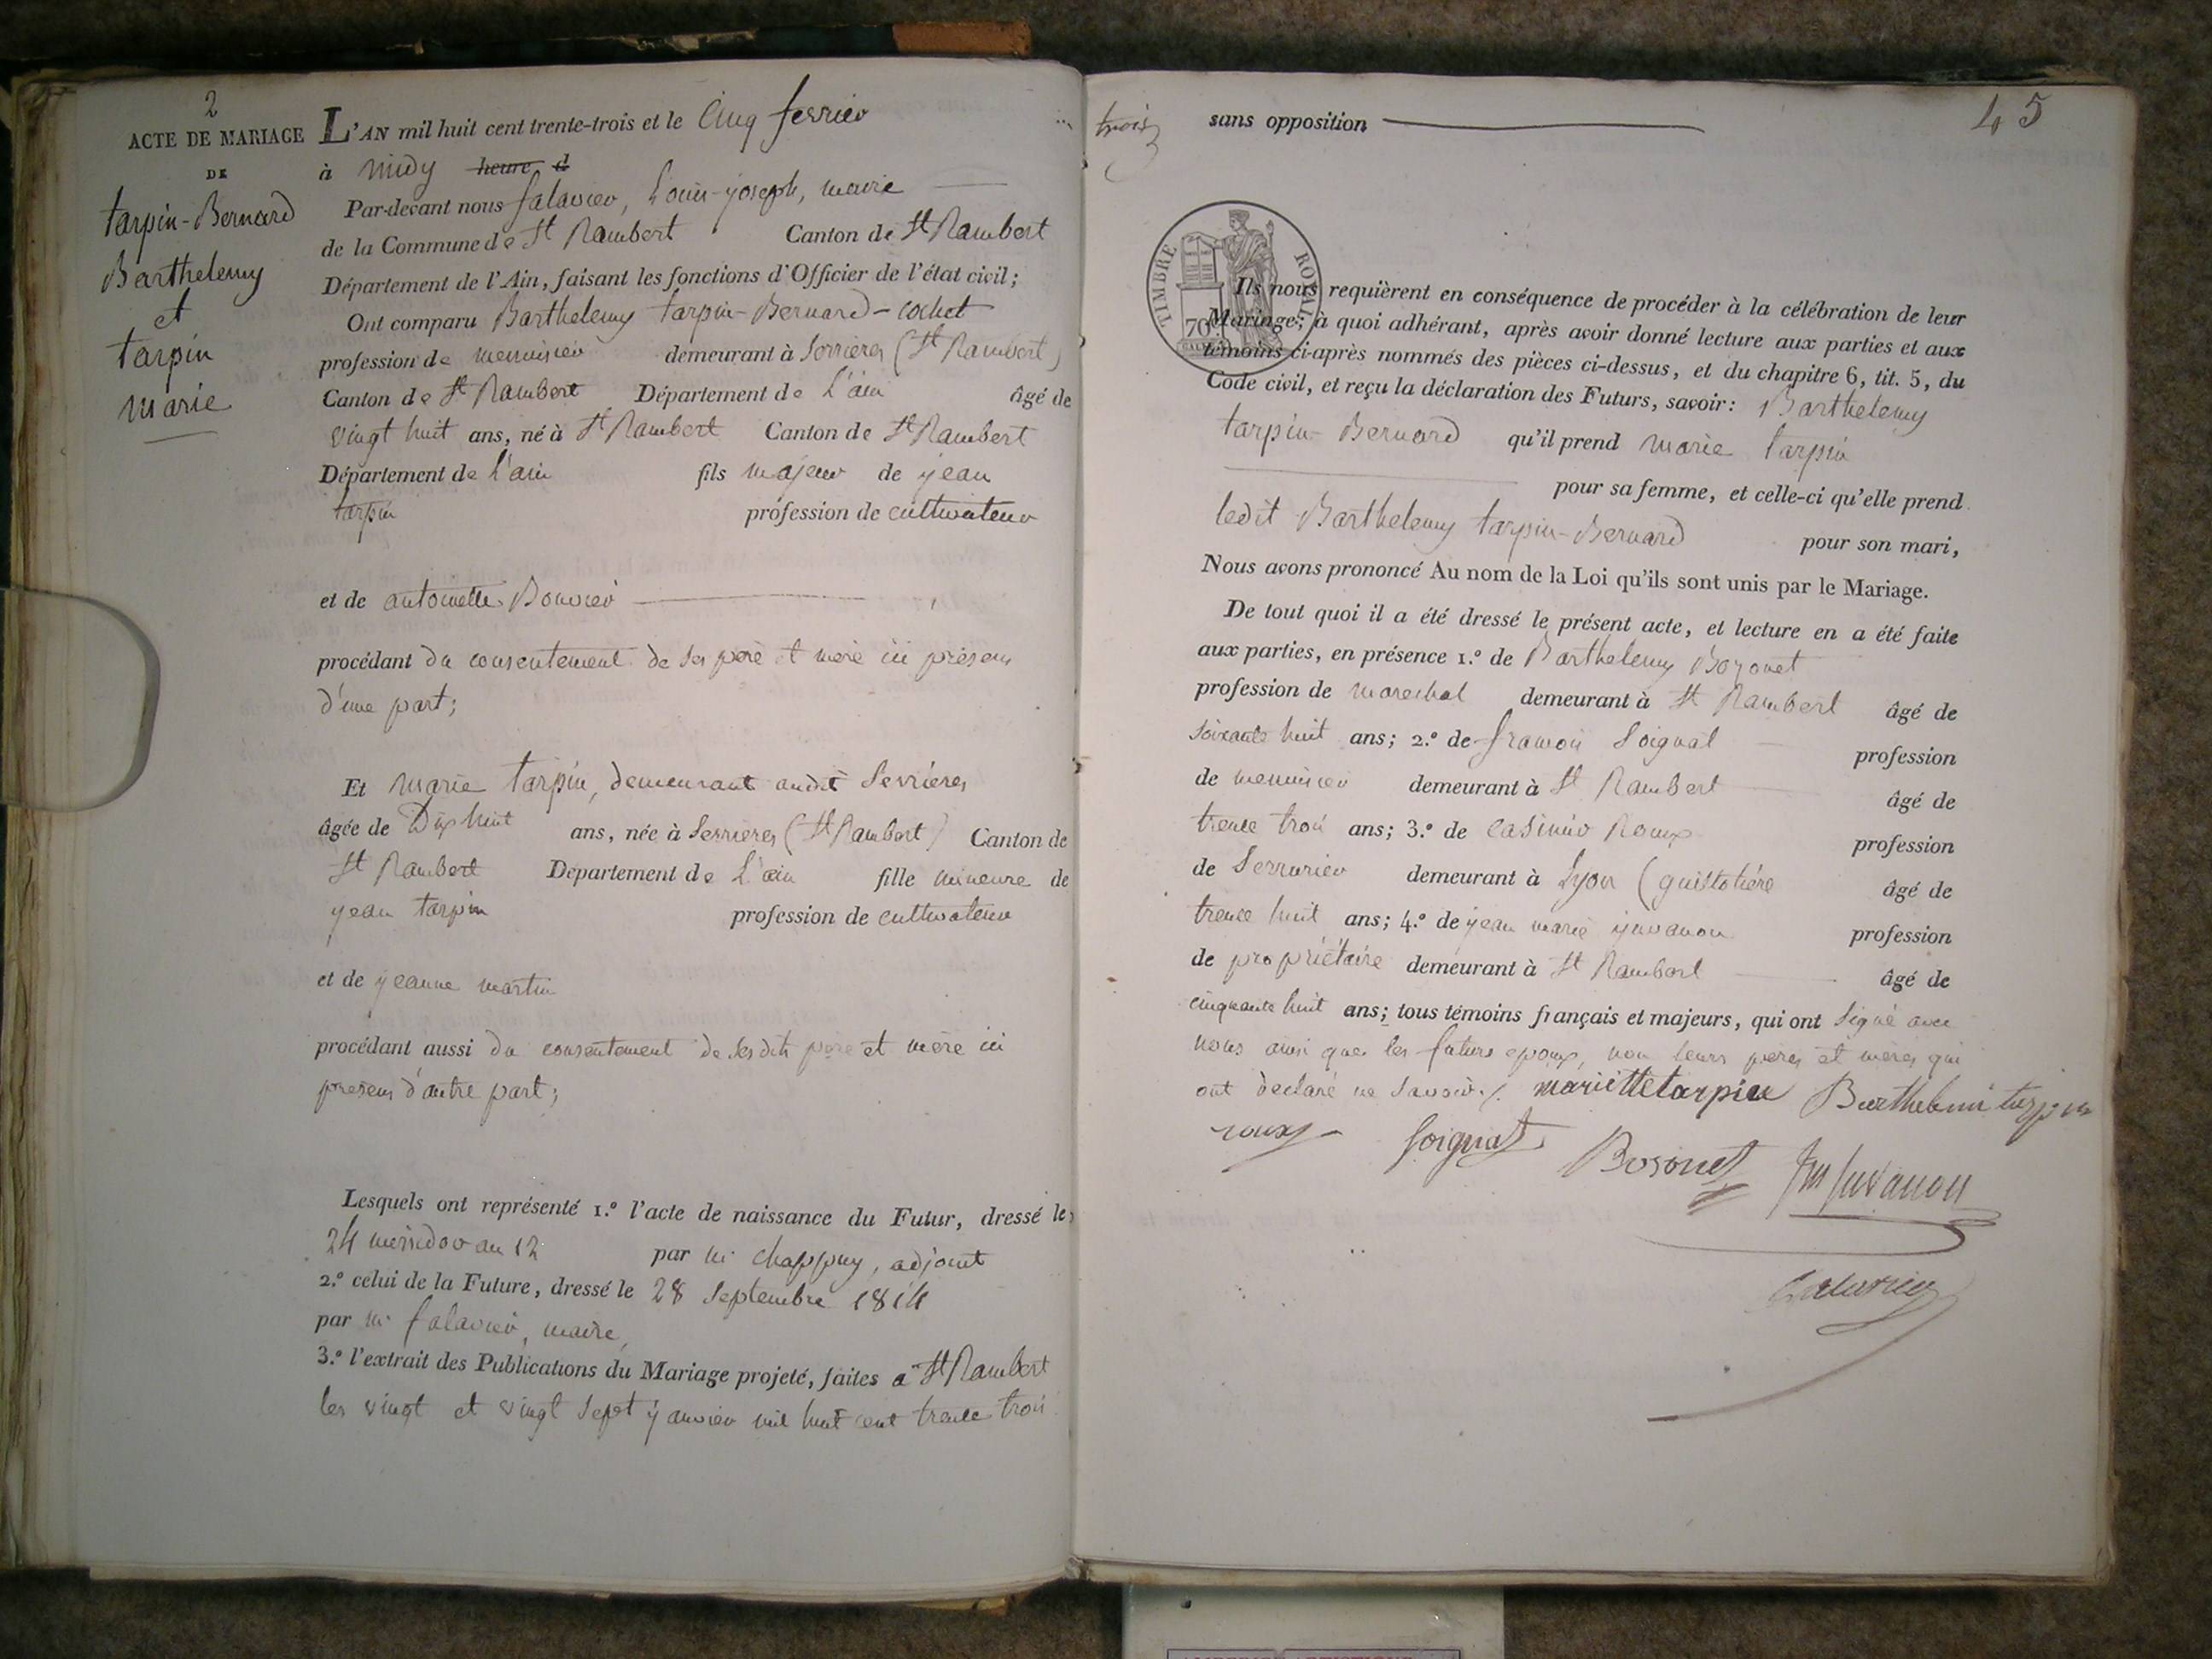 2
ACTE DE MARIAGE
DE
tarpin-Bernard
Barthelemy
et
tarpin
marie
L'AN mil huit cent trente-trois et le Cinq fevrier
à midy heure d
Par-devant nous falavier, Louis-joseph, maire
de la Commune de St Rambert Canton de St Rambert
Département de l'Ain, faisant les fonctions d'Officier de l'état civil;
Ont comparu Barthelemy tarpin-Bernard-cochet
profession de menuisier demeurant à Serrieres (St Rambert)
Canton de St Rambert Département de L'ain âgé de
vingt huit ans, né à St Rambert Canton de St Rambert
Département de L'ain fils majeur de jean
tarpin profession de cultivateur
et de antoinette Bouvier
procédant du consentement de ses père et mère ici présens
d'une part;
Et marie tarpin, demeurant audit Serrieres
âgée de Dix huit ans, née à Serrieres (St Rambert) Canton de
St Rambert Département de L'ain fille mineure de
jean tarpin profession de cultivateur
et de jeanne martin
procédant aussi du consentement de ses dits père et mère ici
presens d'autre part;
Lesquels ont représenté 1.º l'acte de naissance du Futur, dressé le
24 messidor an 12 par m. chappuy, adjoint
2.º celui de la Future, dressé le 28 Septembre 1814
par m. falavier, maire,
3.º l'extrait des Publications du Mariage projeté, faites a St Rambert
les vingt et vingt Sept janvier mil huit cent trente trois
45
trois
sans opposition
TIMBRE ROYAL
70
Ils nous requièrent en conséquence de procéder à la célébration de leur
Mariage; à quoi adhérant, après avoir donné lecture aux parties et aux
témoins ci-après nommés des pièces ci-dessus, et du chapitre 6, tit. 5, du
Code civil, et reçu la déclaration des Futurs, savoir: Barthelemy
tarpin-Bernard qu'il prend marie tarpin
pour sa femme, et celle-ci qu'elle prend
ledit Barthelemy tarpin-Bernard pour son mari,
Nous avons prononcé Au nom de la Loi qu'ils sont unis par le Mariage.
De tout quoi il a été dressé le présent acte, et lecture en a été faite
aux parties, en présence 1.º de Barthelemy Bozonet
profession de marechal demeurant à St Rambert âgé de
soixante huit ans; 2.º de francois Soignat profession
de menuisier demeurant à St Rambert âgé de
trente trois ans; 3.º de Casimir Roux profession
de Serrurier demeurant à Lyon (guillotière âgé de
trente huit ans; 4.º de jean marie juvanon profession
de propriétaire demeurant à St Rambert âgé de
cinquante huit ans; tous témoins français et majeurs, qui ont Signé avec
nous ainsi que les futurs epoux, non leurs pères et mères qui
ont déclaré ne Savoir./. mariette tarpin Barthelmi tarpin
roux Soignat Bosonet jm Juvanon
falavier